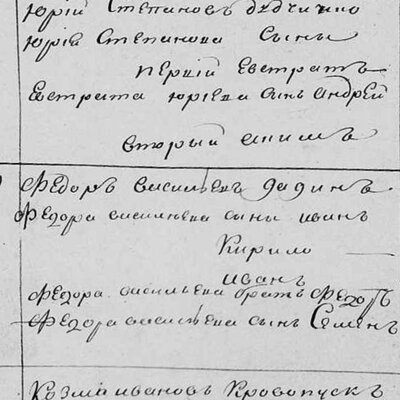 Юрій Степановъ
Юрій Степанова Сыны
первій Евстратъ
Евстрата Юрієва сынъ андрей
вторый аким
Федоръ васильевъ дядинъ
Федора васильева сыны иванъ
Кирило
иванъ
Федора васильева братъ Федотъ
Федора васильева сынъ Семенъ
Козма ивановъ Кровопускъ